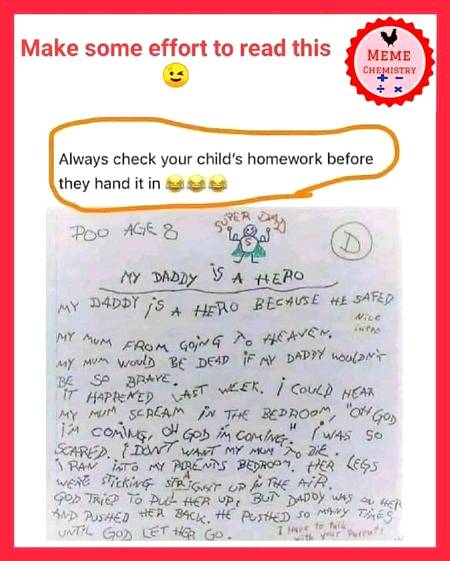 Make some effort to read this
MEME
CHEMISTRY
+ −
÷ ×
Always check your child's homework before
they hand it in
POO AGE 8
SUPER DAD
S
D
MY DADDY iS A HERO
MY DADDY iS A HERO BECAUSE HE SAFED
Nice
intro
MY MUM FROM GOiNG TO HEAVEN.
MY MUM WOULD BE DEAD iF MY DADDY WOULDN'T
BE SO BRAVE.
iT HAPPENED LAST WEEK. i COULD HEAR
MY MUM SCREAM iN THE BEDROOM, "OH GOD
i'M COMiNG, OH GOD i'M COMiNG." i WAS SO
SCARED. i DON'T WANT MY MUM TO DiE.
i RAN iNTO MY PARENTS BEDROOM. HER LEGS
WERE STiCKiNG STRAiGHT UP iN THE AiR.
GOD TRiED TO PULL HER UP, BUT DADDY WAS ON HER
AND PUSHED HER BACK. HE PUSHED SO MANY TiMES
UNTiL GOD LET HER GO.
I have to talk
with your Parents